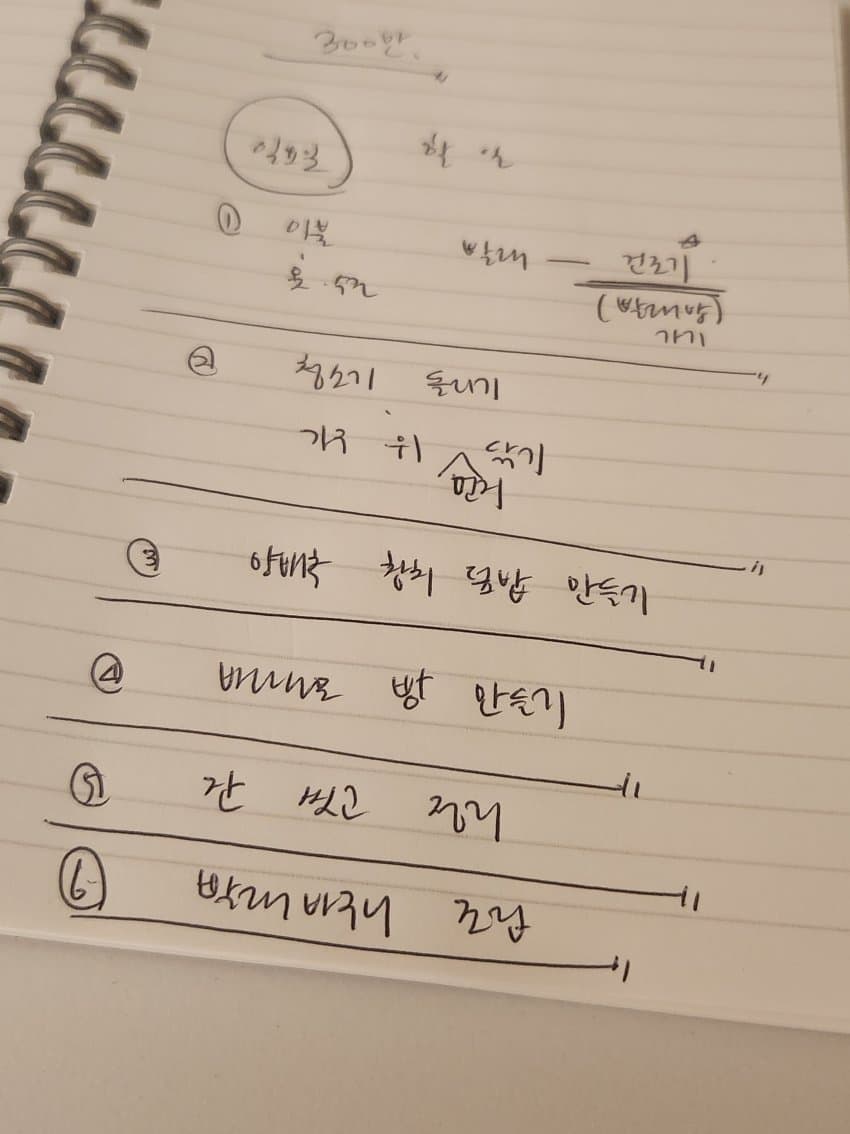 300만.
일요일 할 일
① 이불 빨래 — 건조기
옷·수건 (빨래방)
가기
② 청소기 돌리기
가구 위 먼지 닦기
③ 양배추 참치 덮밥 만들기
④ 바나나 빵 만들기
⑤ 잔 씻고 정리
⑥ 빨래바구니 조립